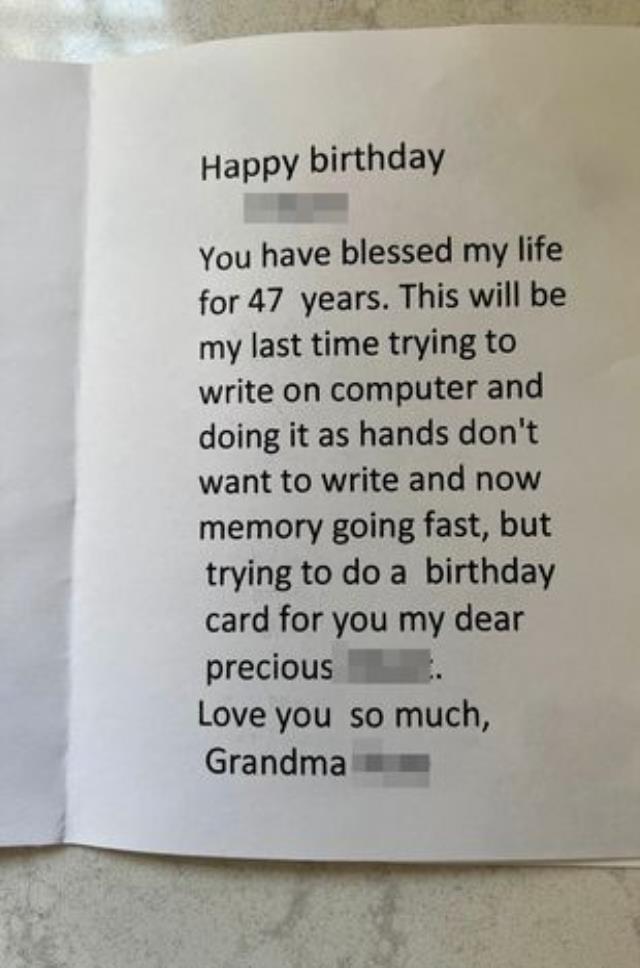 Happy birthday
You have blessed my life
for 47  years. This will be
my last time trying to
write on computer and
doing it as hands don't
want to write and now
memory going fast, but
trying to do a  birthday
card for you my dear
precious .
Love you  so much,
Grandma